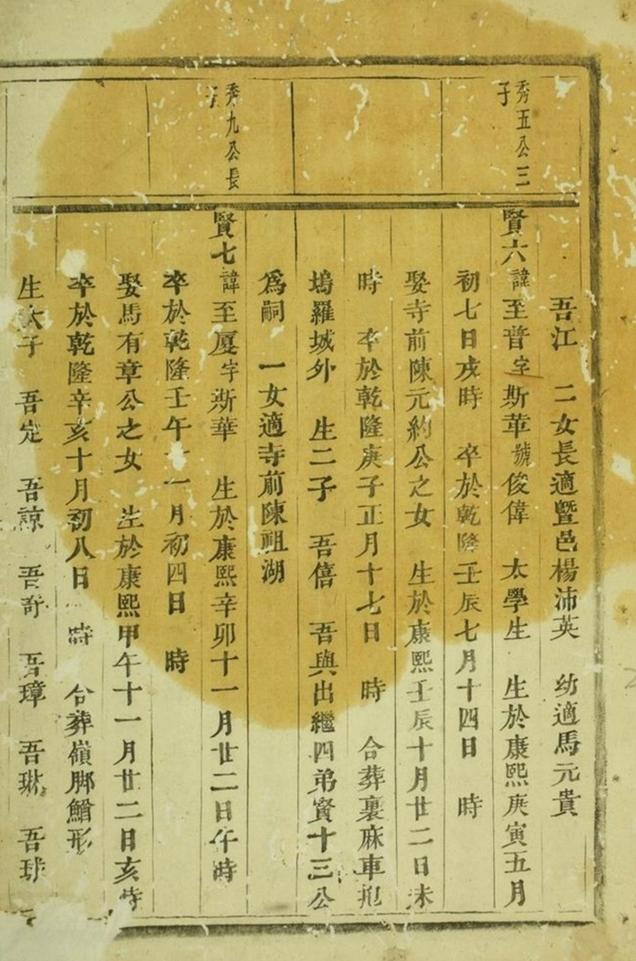 秀五公三
子
秀九公長
吾江　二女長適暨邑楊沛英　幼適馬元貴
賢六諱至普字斯華號俊偉　太學生　生於康熙庚寅五月
初七日戌時　卒於乾隆壬辰七月十四日　時
娶寺前陳元約公之女　生於康熙壬辰十月廿二日未
時　卒於乾隆庚子正月十七日　時　合葬裏麻車
塢羅城外　生二子　吾僖　吾與出繼四弟賢十三公
爲嗣　一女適寺前陳祖湖
賢七諱至厦字斯華　生於康熙辛卯十一月廿二日午時
卒於乾隆壬午十一月初四日　時
娶馬有章公之女　生於康熙甲午十一月廿二日亥時
卒於乾隆辛亥十月初八日　時　合葬嶺脚鱠形
生六子　吾定　吾諒　吾奇　吾璋　吾琳　吾球